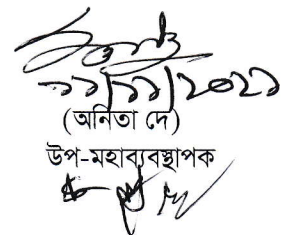 ১১/১১/২০২১
(অনিতা দে)
উপ-মহাব্যবস্থাপক